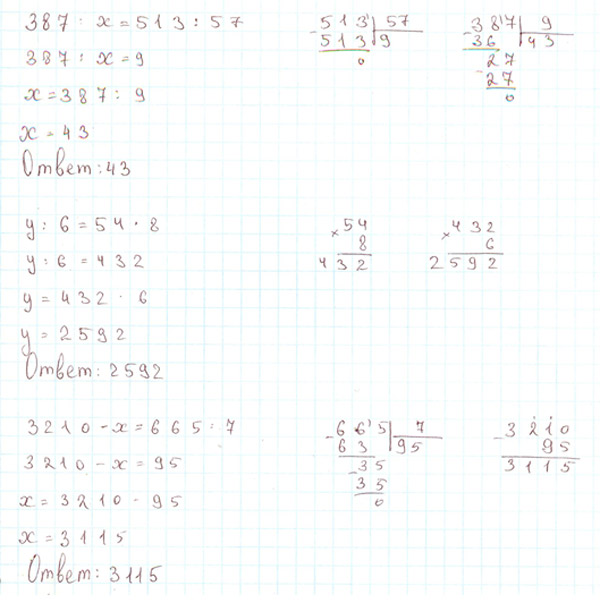 387 : x = 513 : 57
387 : x = 9
x = 387 : 9
x = 43
Ответ: 43
- 513 | 57
513 | 9
0
- 387 | 9
36 | 43
- 27
27
0
y : 6 = 54 · 8
y : 6 = 432
y = 432 · 6
y = 2592
Ответ: 2592
× 54
8
432
× 432
6
2592
3210 - x = 665 : 7
3210 - x = 95
x = 3210 - 95
x = 3115
Ответ: 3115
- 665 | 7
63 | 95
- 35
35
0
- 3210
95
3115